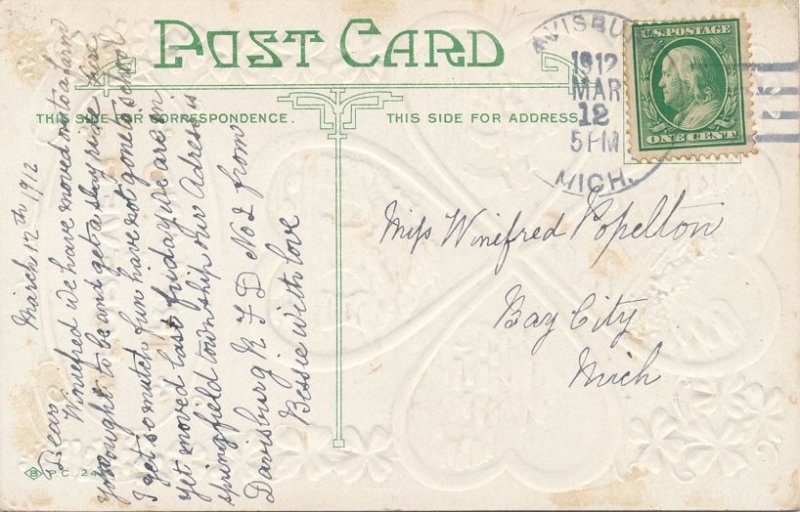 POST CARD
THIS SIDE FOR CORRESPONDENCE.
THIS SIDE FOR ADDRESS
AVISBU
1912
MAR
12
5 PM
MICH.
U.S. POSTAGE
ONE CENT
March 12th 1912
Dear
Winifred we have moved onto a farm
you ought to be and get a slay ride
I get so mutch fun have not gone to school
yet moved last friday we are in
springfield township our Adress is
Davisburg R F D No 2 from
Bessie with love
Miss Winefred Popelton
Bay City
Mich
P.C. 24